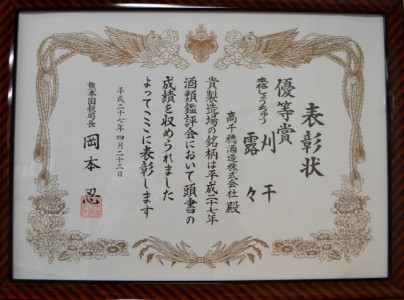 表彰状
優等賞
本格しょうちゅう
刈干
露々
高千穂酒造株式会社 殿
貴製造場の銘柄は平成二十七年
酒類鑑評会において頭書の
成績を収められました
よってここに表彰します
平成二十七年四月二十二日
熊本国税局長 岡本忍